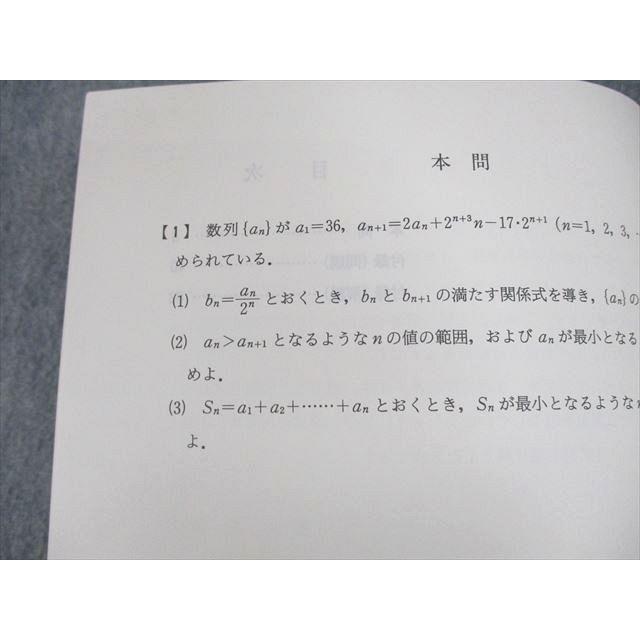 本 問
【1】 数列 {aₙ} が a₁=36, aₙ₊₁=2aₙ+2ⁿ⁺³n−17·2ⁿ⁺¹ (n=1, 2, 3,
められている.
(1) bₙ=aₙ/2ⁿ とおくとき, bₙ と bₙ₊₁ の満たす関係式を導き, {aₙ} の
(2) aₙ>aₙ₊₁ となるような n の値の範囲, および aₙ が最小となる
めよ.
(3) Sₙ=a₁+a₂+……+aₙ とおくとき, Sₙ が最小となるような
よ.
目 次